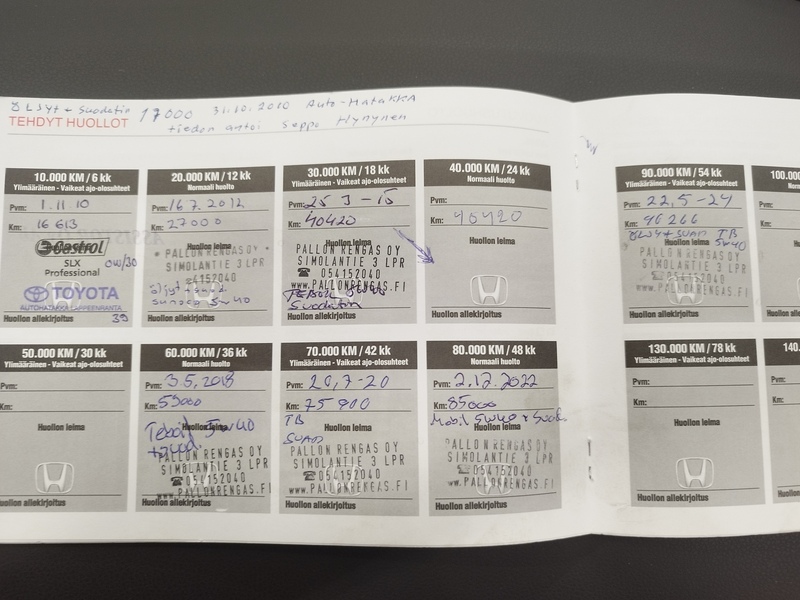 ÖLJyt + Suodatin 17000 31.10.2010 Auto-Hatakka
TEHDYT HUOLLOT tiedon antoi Seppo Hynynen
10.000 KM / 6 kk
Ylimääräinen - Vaikeat ajo-olosuhteet
Pvm: 1.11.10
Km: 16 613
Castrol
SLX
Professional 0W/30
TOYOTA
AUTOHATAKKA LAPPEENRANTA
Huollon allekirjoitus
20.000 KM / 12 kk
Normaali huolto
Pvm: 16 7. 2012
Km: 27000
Huollon leima
PALLON RENGAS OY
SIMOLANTIE 3 LPR
54152040
sunoco 5w40
Huollon allekirjoitus
30.000 KM / 18 kk
Ylimääräinen - Vaikeat ajo-olosuhteet
Pvm: 25 3 - 15
Km: 40420
Huollon leima
PALLON RENGAS OY
SIMOLANTIE 3 LPR
☎ 054152040
www.PALLONRENGAS.FI
Teboil 5w40
Suodatin
Huollon allekirjoitus
40.000 KM / 24 kk
Normaali huolto
Pvm:
Km: 40420
Huollon leima
Huollon allekirjoitus
90.000 KM / 54 kk
Ylimääräinen - Vaikeat ajo-olosuhteet
Pvm: 22,5-24
Km: 90266
Huollon leima
TB
5w40
PALLON RENGAS OY
SIMOLANTIE 3 LPR
☎ 054152040
www.PALLONRENGAS.FI
Huollon allekirjoitus
50.000 KM / 30 kk
Ylimääräinen - Vaikeat ajo-olosuhteet
Pvm:
Km:
Huollon leima
Huollon allekirjoitus
60.000 KM / 36 kk
Normaali huolto
Pvm: 3.5.2018
Km: 55000
Huollon leima
Teboil 5w40
PALLON RENGAS OY
SIMOLANTIE 3 LPR
☎ 054152040
www.PALLONRENGAS.FI
Huollon allekirjoitus
70.000 KM / 42 kk
Ylimääräinen - Vaikeat ajo-olosuhteet
Pvm: 20,7-20
Km: 75900
TB
Huollon leima
SUAD
PALLON RENGAS OY
SIMOLANTIE 3 LPR
☎ 054152040
www.PALLONRENGAS.FI
Huollon allekirjoitus
80.000 KM / 48 kk
Normaali huolto
Pvm: 2.12.2022
Km: 85000
Mobil 5W40 +
Huollon leima
PALLON RENGAS OY
SIMOLANTIE 3 LPR
☎ 054152040
www.PALLONRENGAS.FI
Huollon allekirjoitus
130.000 KM / 78 kk
Ylimääräinen - Vaikeat ajo-olosuhteet
Pvm:
Km:
Huollon leima
Huollon allekirjoitus